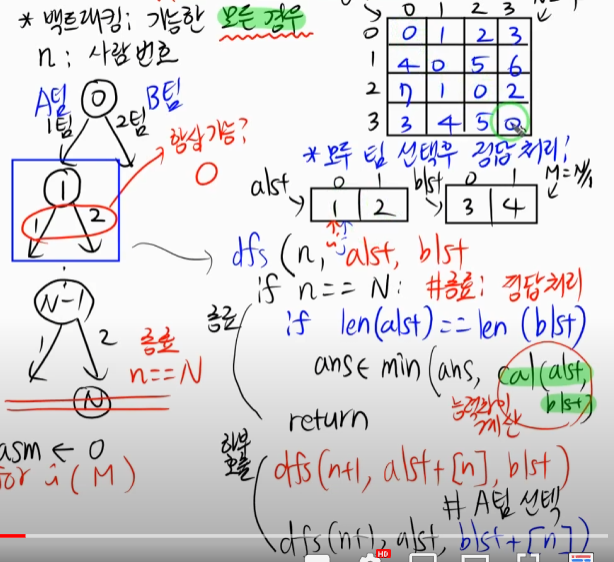 * 백트래킹: 가능한 모든 경우
n: 사람 번호
A팀 0 B팀
1팀 2팀
항상가능?
○
1
1 2
N-1
1 2
종료
n==N
N
asm ← 0
for i (M)
0 1 2 3
0 0 1 2 3
1 4 0 5 6
2 7 1 0 2
3 3 4 5 0
*모두 팀 선택후 정답처리!
alst 0 1 blst 0 1 M=N/2
1 2 3 4
i j
dfs(n, alst, blst
if n==N: #종료: 정답처리
종료
if len(alst)==len(blst)
ans ← min(ans, cal(alst,
blst)
능력차이
계산
return
하부
호출
dfs(n+1, alst+[n], blst)
# A팀 선택
dfs(n+1, alst, blst+[n])
HD